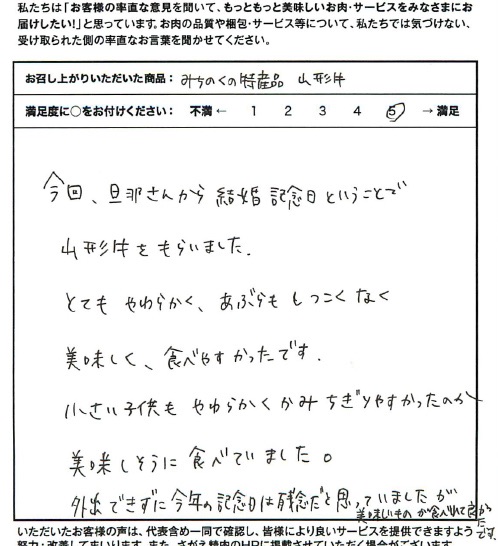 私たちは「お客様の率直な意見を聞いて、もっともっと美味しいお肉・サービスをみなさまにお
届けしたい!」と思っています。お肉の品質や梱包・サービス等について、私たちでは気づけない、
受け取られた側の率直なお言葉を聞かせてください。
お召し上がりいただいた商品： みちのくの特産品 山形牛
満足度に○をお付けください： 不満 ← 1 2 3 4 5 → 満足
今回、旦那さんから結婚記念日ということで
山形牛をもらいました.
とてもやわらかく、あぶらもしつこくなく
美味しく、食べやすかったです.
小さい子供もやわらかくかみちぎりやすかったのか
美味しそうに食べていました。
外出できずに今年の記念日は残念だと思っていましたが
美味しいものが食べれて良かった
です
いただいたお客様の声は、代表含め一同で確認し、皆様により良いサービスを提供できますよう
努力・改善してまいります。また、さがえ精肉のHPに掲載させていただく場合がございます。